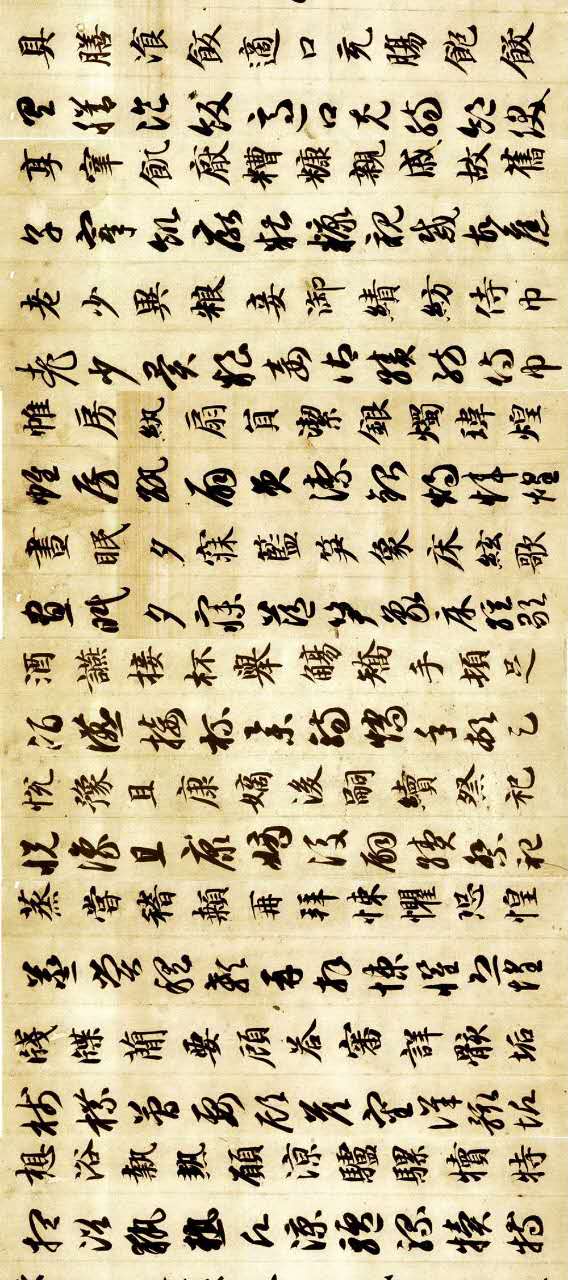 具膳湌飯適口充腸飽飫
具膳湌飯適口充腸飽飫
享宰飢厭糟糠親戚故舊
享宰飢厭糟糠親戚故舊
老少異粮妾御績紡侍巾
老少異粮妾御績紡侍巾
帷房紈扇員潔銀燭瑋煌
帷房紈扇員潔銀燭瑋煌
晝眠夕寐藍笋象床絃歌
晝眠夕寐藍笋象床絃歌
酒讌接杯舉觴矯手頓足
酒讌接杯舉觴矯手頓足
悅豫且康嫡後嗣續祭祀
悅豫且康嫡後嗣續祭祀
蒸嘗稽顙再拜悚懼恐惶
蒸嘗稽顙再拜悚懼恐惶
牋牒簡要顧答審詳骸垢
牋牒簡要顧答審詳骸垢
想浴執熱願涼驢騾犢特
想浴執熱願涼驢騾犢特